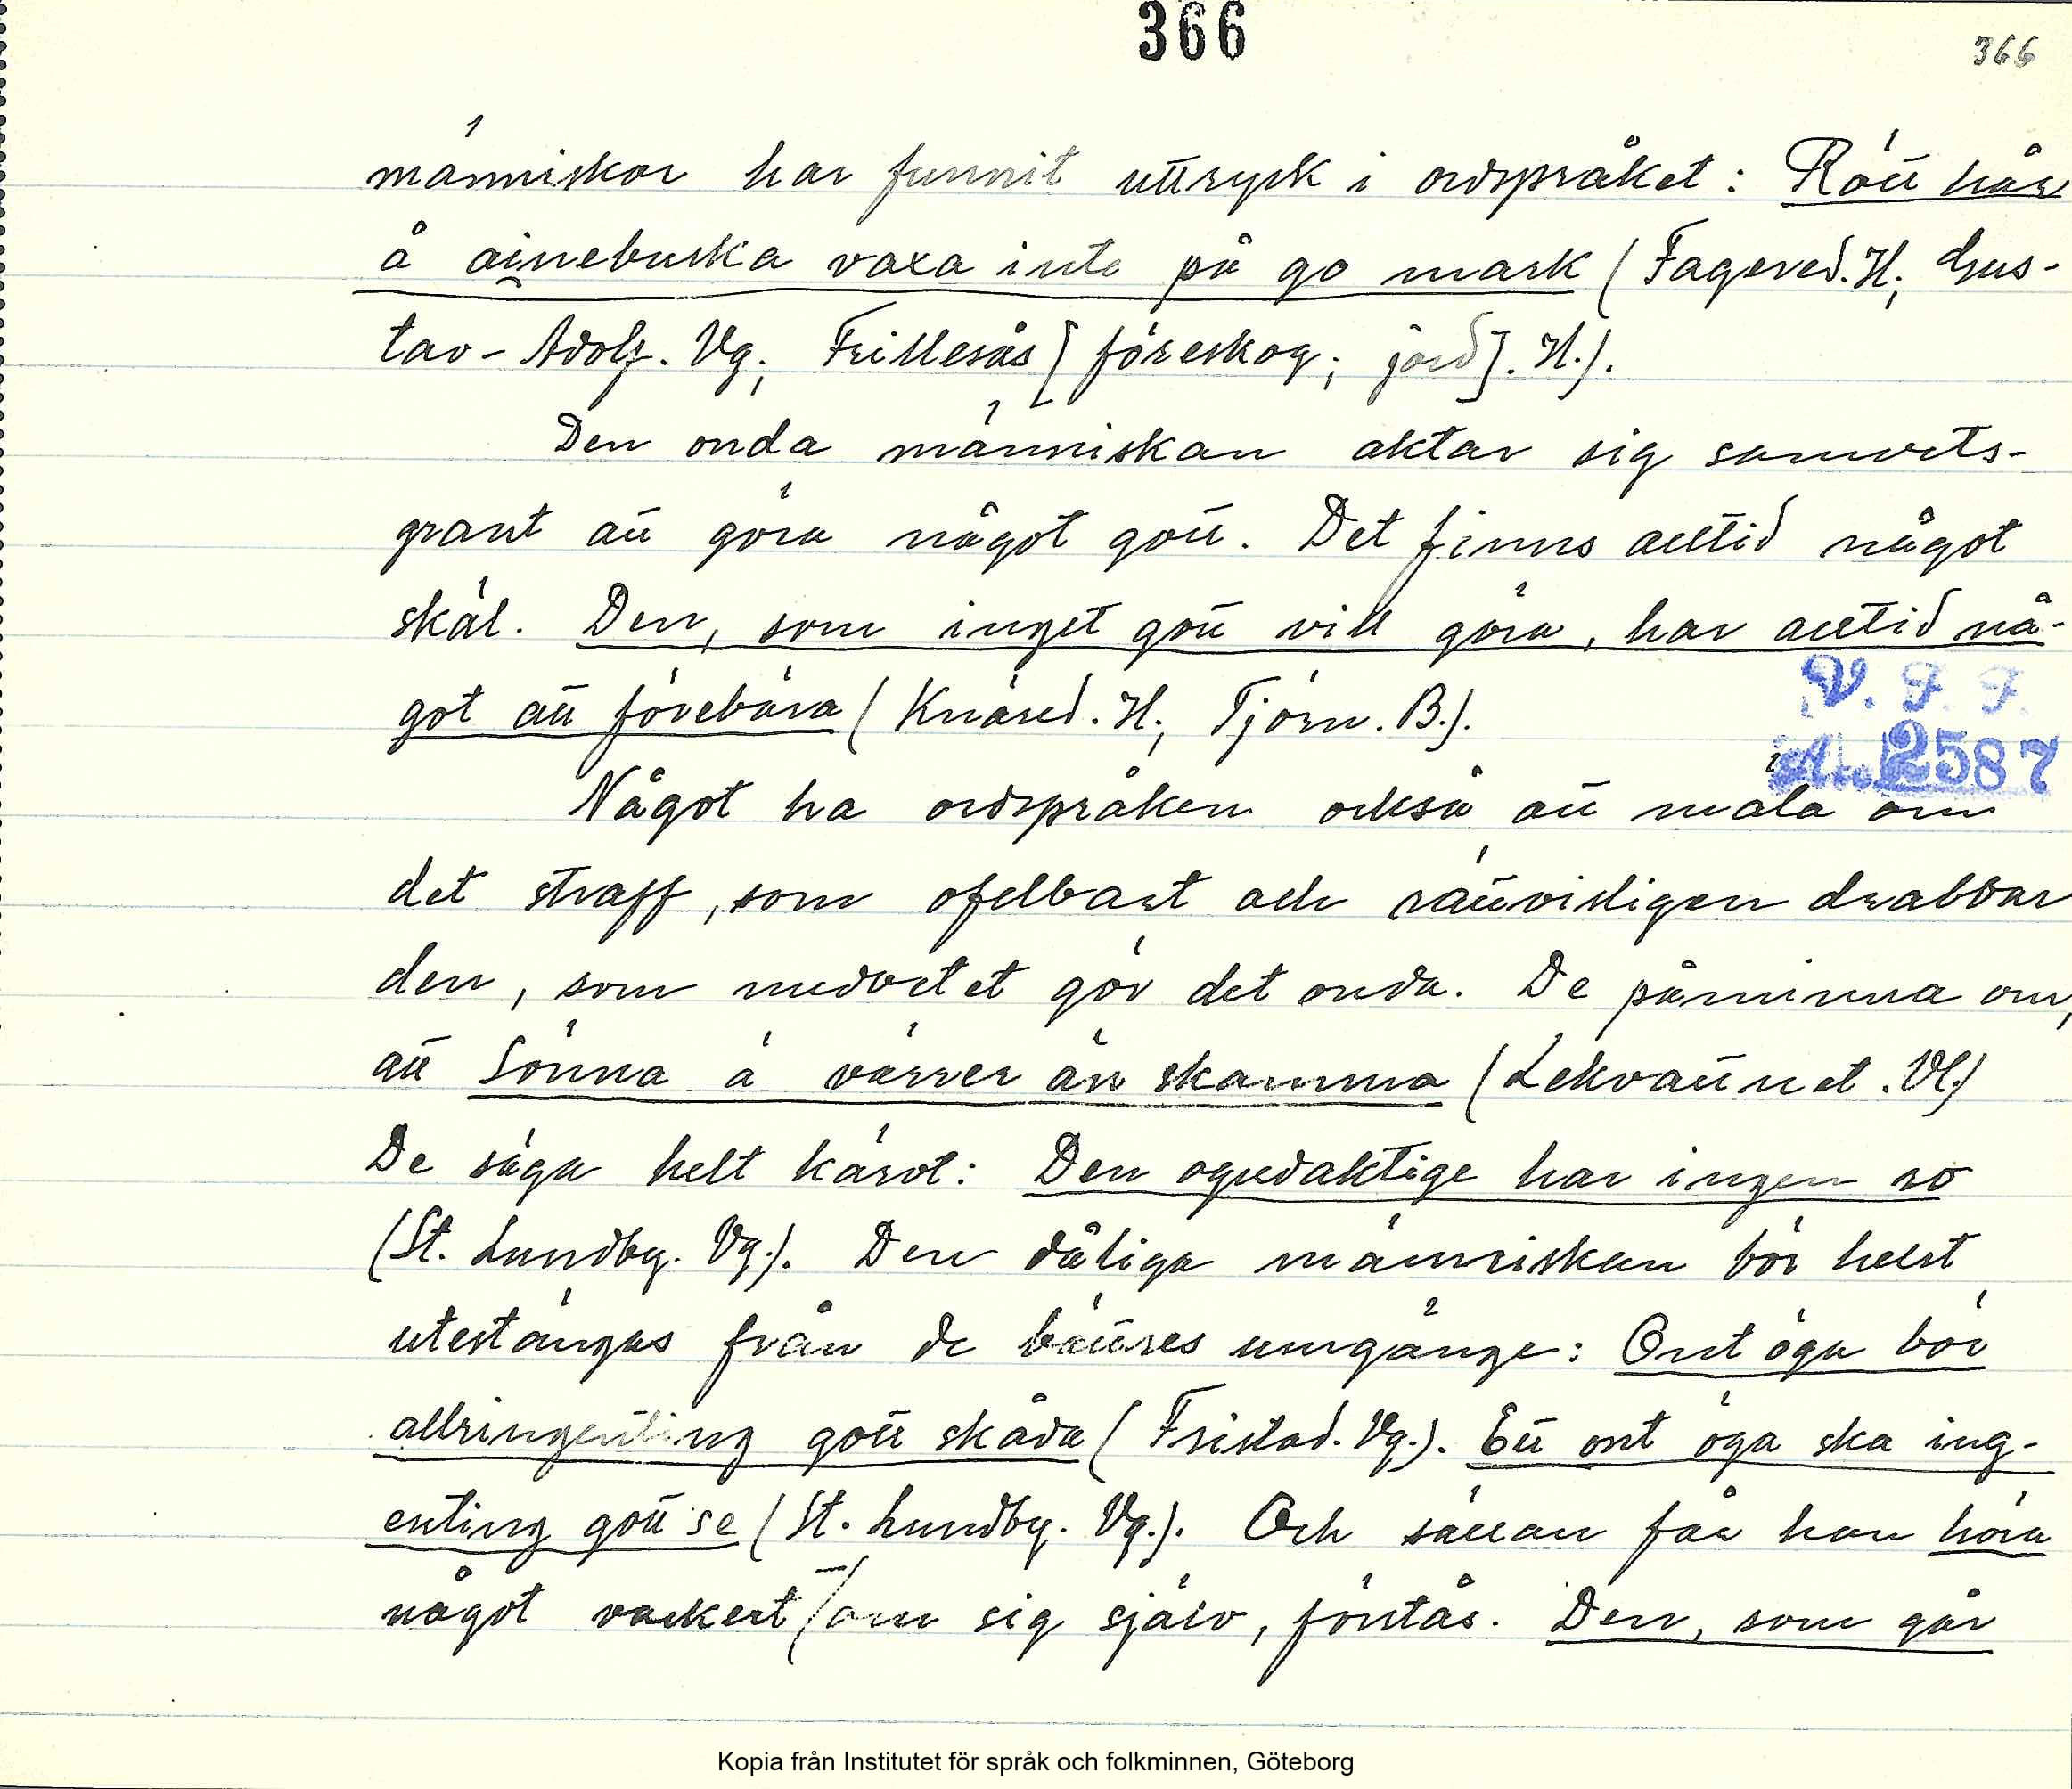 366
366
människor har funnit uttryck i ordspråket: Rött hår
å äinebuska växa inte på go mark (Fagered. H; Gus-
tav-Adolf. Vg; Frillesås [föreskog; jord]. H.).
Den onda människan aktar sig samvets-
grant att göra något gott. Det finns alltid något
skäl. Den, som inget gott vill göra, har alltid nå-
got att förebära (Knäred. H; Tjörn. B.).
V. F. F.
2587
Något ha ordspråken också att mäla om
det straff, som ofelbart och rättvisligen drabbar
den, som medvetet gör det onda. De påminna om,
att Sönna ä värrer än skamma (Lekvattnet. Vl.)
De säga helt kärvt: Den ogudaktige har ingen ro
(St. Lundby. Vg.). Den dåliga människan bör helst
utestängas från de bättres umgänge: Ont öga bör
allringenting gott skåda (Fristad. Vg.). Ett ont öga ska ing-
enting gott se (St. Lundby. Vg.). Och sällan får han höra
något vackert om sig själv, förstås. Den, som går
Kopia från Institutet för språk och folkminnen, Göteborg